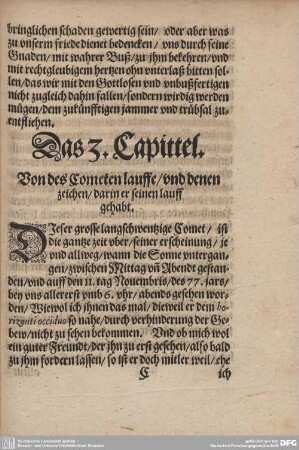 bringlichen schaden gewertig sein/ oder aber was
zu vnserm friede dienet bedencken/ vns durch seine
Gnaden/ mit wahrer Buß/ zu jhm bekehren/ vnd
mit rechtgleubigem hertzen ohn vnterlaß bitten sol-
len/ das wir mit den Gottlosen vnd vnbußfertigen
nicht zugleich dahin fallen/ sondern wirdig werden
mügen/ dem zukünfftigen jammer vnd trübsal zu-
entfliehen.
Das 3. Capittel.
Von des Cometen lauffe/ vnd denen
zeichen/ darin er seinen lauff
gehabt.
DJeser grosse langschwentzige Comet/ ist
die gantze zeit vber/ seiner erscheinung/ je
vnd allweg/ wann die Sonne vntergan-
gen/ zwischen Mittag vñ Abendt gestan-
den/ vnd auff den 11. tag Nouembris/ des 77. jars/
bey vns aller erst vmb 6. vhr/ abends gesehen wor-
den/ Wiewol ich jhnen das mal/ dieweil er dem ho-
rizonti occiduo so nahe/ durch verhinderung der Ge-
bew/ nicht zu sehen bekommen. Vnd ob mich wol
ein guter Freundt/ der jhn zu erst gesehen/ also bald
zu jhm fordern lassen/ so ist er doch mitler weil/ ehe
C ich